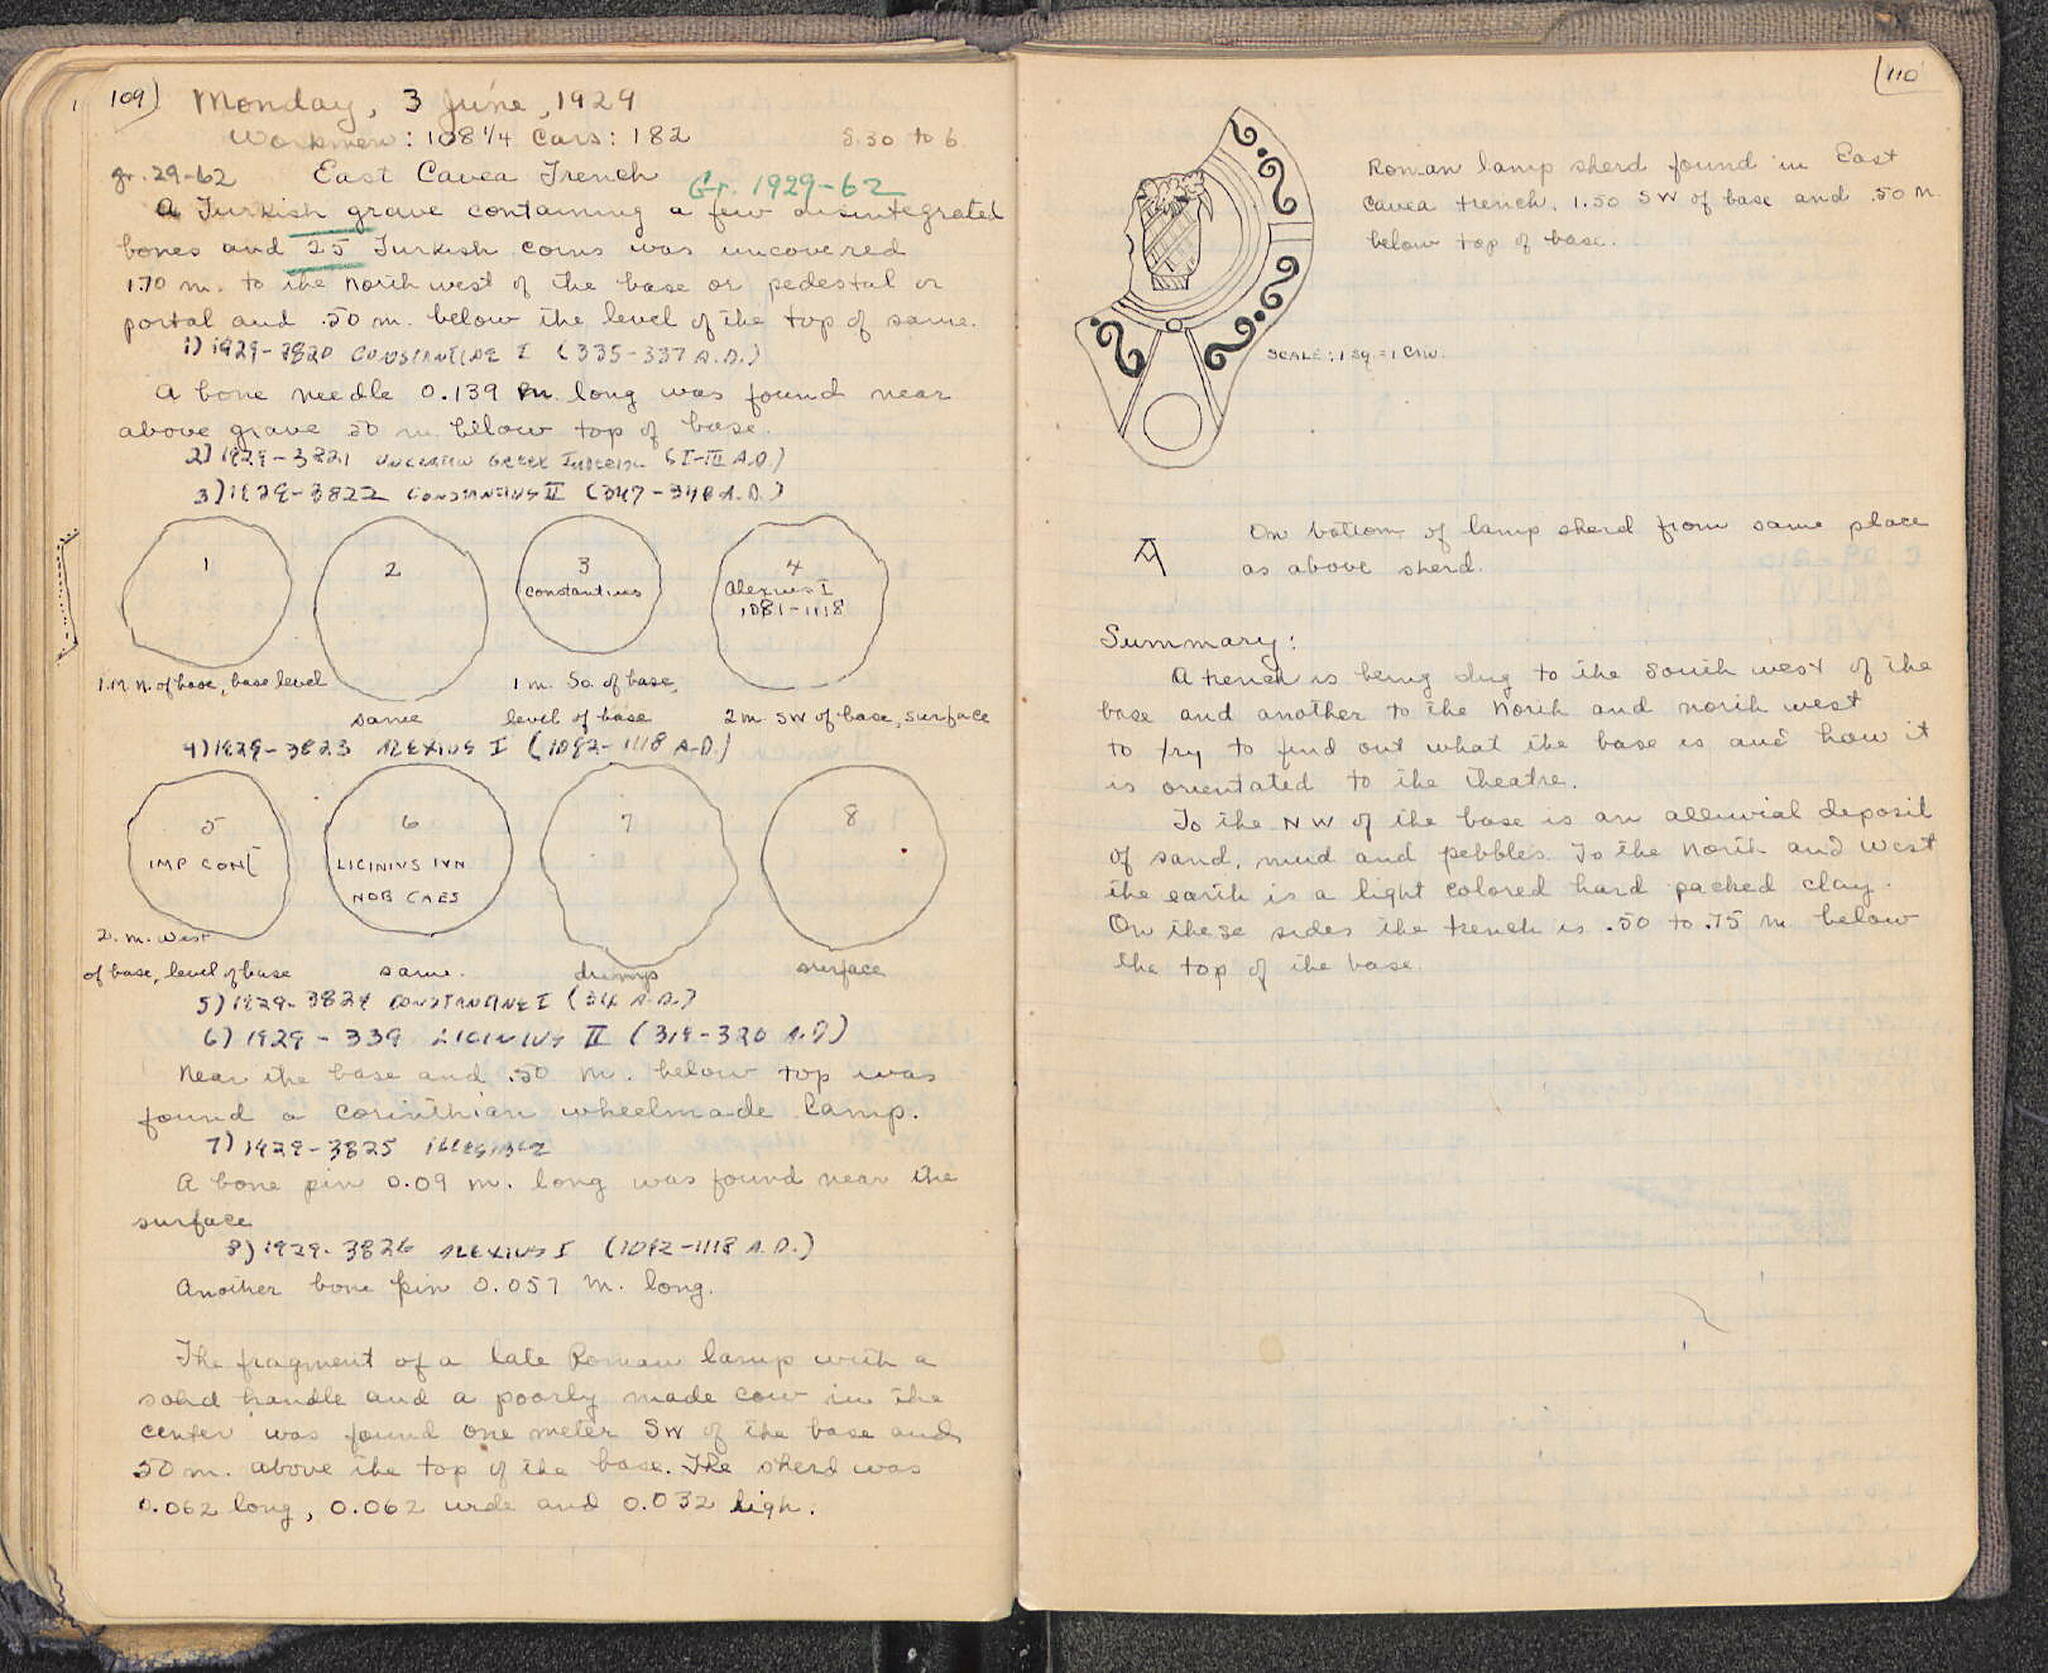 109)
Monday, 3 June, 1929
Workmen: 108 1/4 Cars: 182 5.30 to 6
gr. 29-62 East Cavea Trench Gr. 1929-62
A Turkish grave containing a few disintegrated
bones and 25 Turkish coins was uncovered
1.70 m. to the north west of the base or pedestal or
portal and .50 m. below the level of the top of same.
1) 1929-3820 CONSTANTINE I (335-337 A.D.)
A bone needle 0.139 m. long was found near
above grave .50 m below top of base.
2) 1929-3821 UNCERTAIN GREEK IMPERIAL (I-III A.D.)
3) 1929-3822 CONSTANTIUS II (347-348 A.D.)
1
2
3
Constantius
4
Alexius I
1081-1118
1. m. n. of base, base level
same
1 m. So. of base,
level of base
2 m. SW of base, surface
4) 1929-3823 ALEXIUS I (1092-1118 A.D.)
5
IMP CONT
6
LICINIVS IVN
NOB CAES
7
8
2. m. west
of base, level of base
same.
dumps
surface
5) 1929-3824 CONSTANTINE I (314 A.D.)
6) 1929-339 LICINIUS II (319-320 A.D)
Near the base and .50 m. below top was
found a Corinthian wheelmade lamp.
7) 1929-3825 ILLEGIBLE
A bone pin 0.09 m. long was found near the
surface
8) 1929-3826 ALEXIUS I (1092-1118 A.D.)
Another bone pin 0.057 m. long.
The fragment of a late Roman lamp with a
solid handle and a poorly made cow in the
center was found one meter SW of the base and
50 m. above the top of the base. The sherd was
0.062 long, 0.062 wide and 0.032 high.
(110
Roman lamp sherd found in East
Cavea trench. 1.50 SW of base and .50 m.
below top of base.
SCALE: 1 SQ. = 1 CM.
On bottom of lamp sherd from same place
as above sherd.
Summary:
A trench is being dug to the South west of the
base and another to the North and north west
to try to find out what the base is and how it
is orientated to the theatre.
To the NW of the base is an alluvial deposit
of sand, mud and pebbles. To the North and West
the earth is a light colored hard packed clay.
On these sides the trench is .50 to .75 m below
the top of the base.